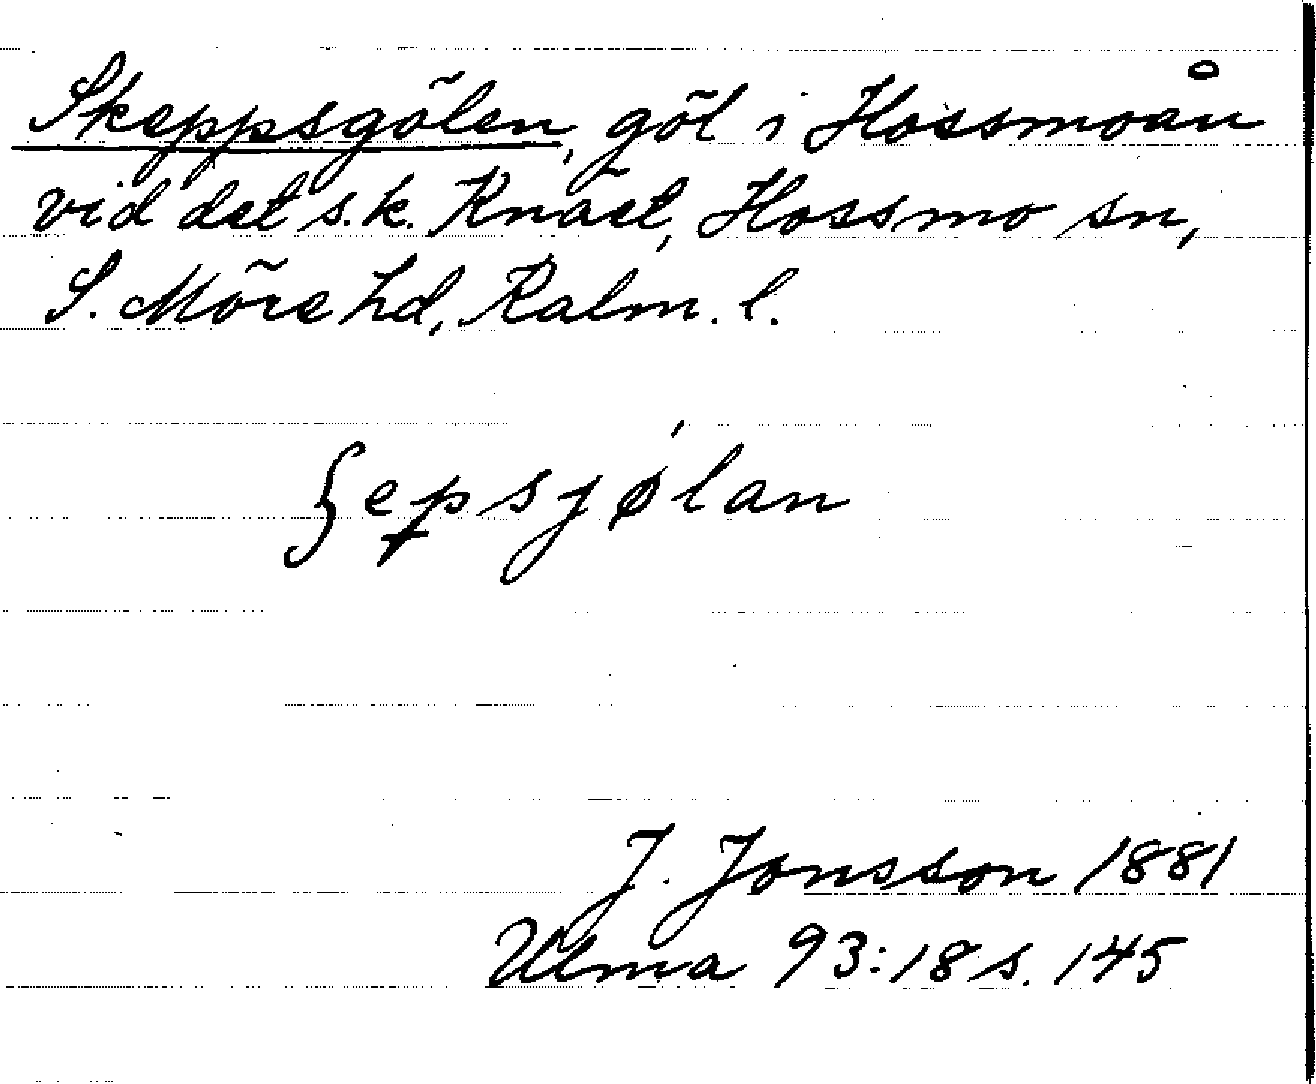 Skeppsgölen, göl i Hossmoån
vid det s.k. Knäet, Hossmo sn,
S. Möre hd, Kalm. l.
ʃepsjø̀lan
J. Jonsson 1881
Ulma 93:18 s. 145